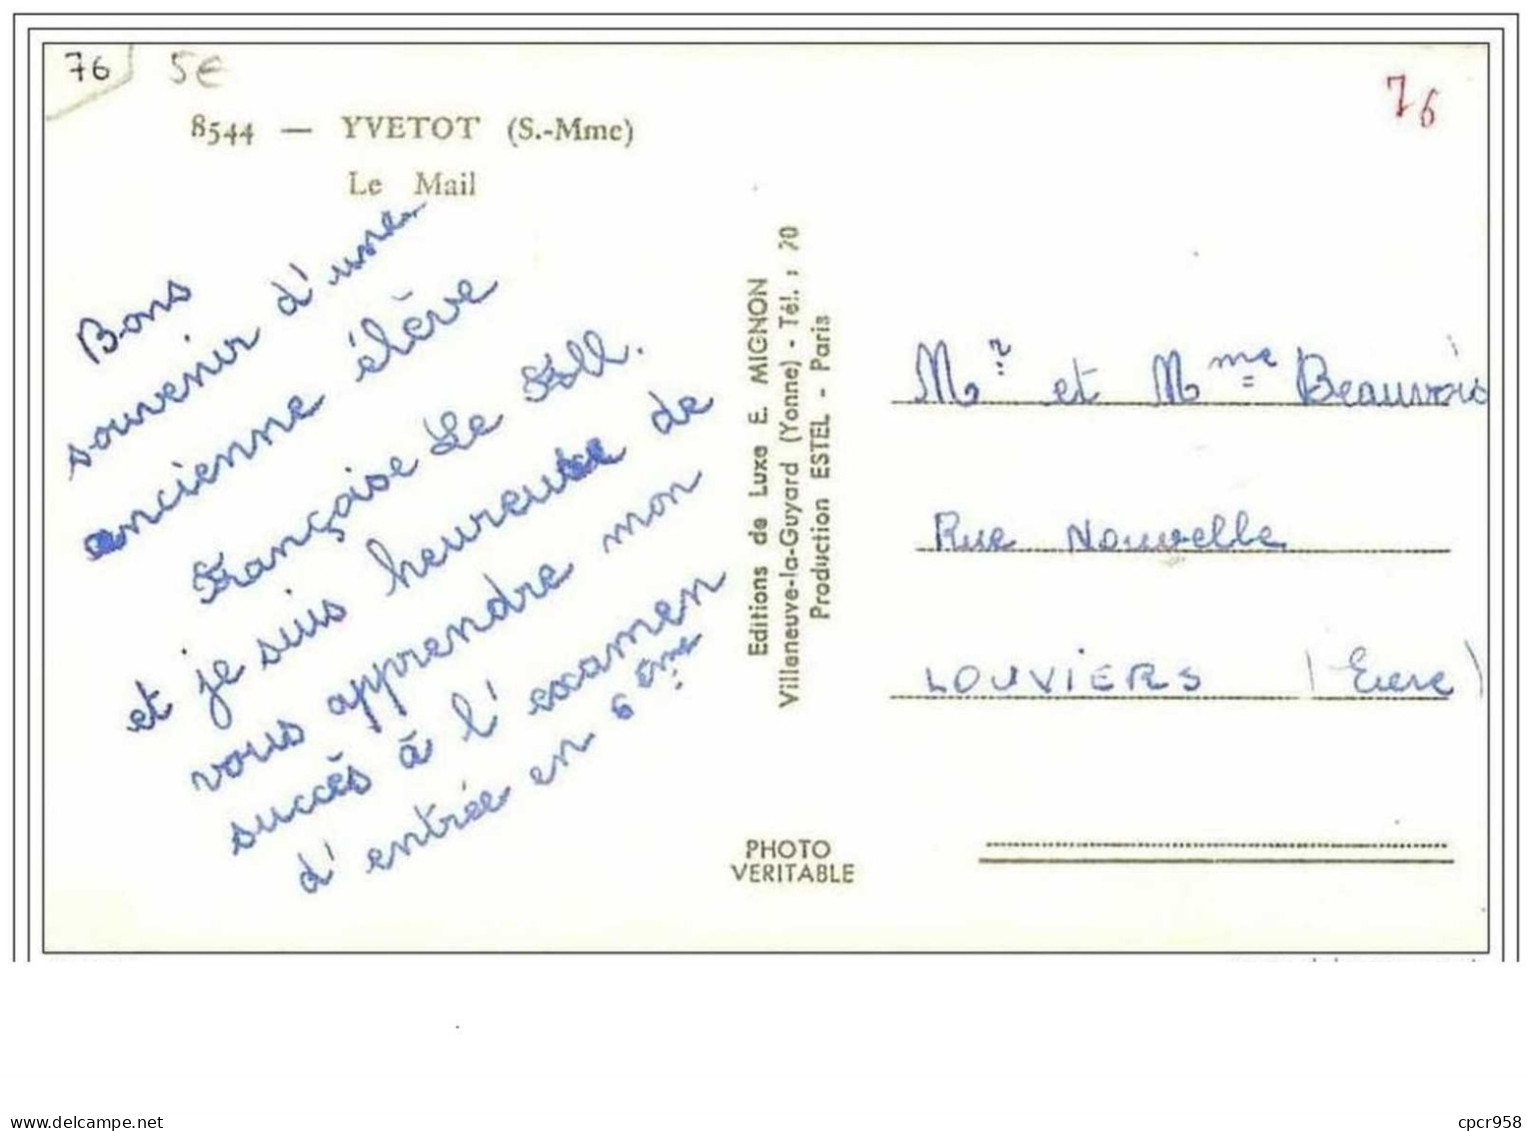 76 5€
76
8544 — YVETOT (S.-Mme)
Le Mail
Bons
souvenir d'une
ancienne élève
Françoise Le Foll.
et je suis heureuse de
vous apprendre mon
succès à l'examen
d'entrée en 6ème
Editions de Luxe E. MIGNON
Villeneuve-la-Guyard (Yonne) - Tél. : 20
Production ESTEL - Paris
PHOTO
VERITABLE
Mr et Mme Beauvois
Rue Nouvelle
LOUVIERS (Eure)
cpcr958